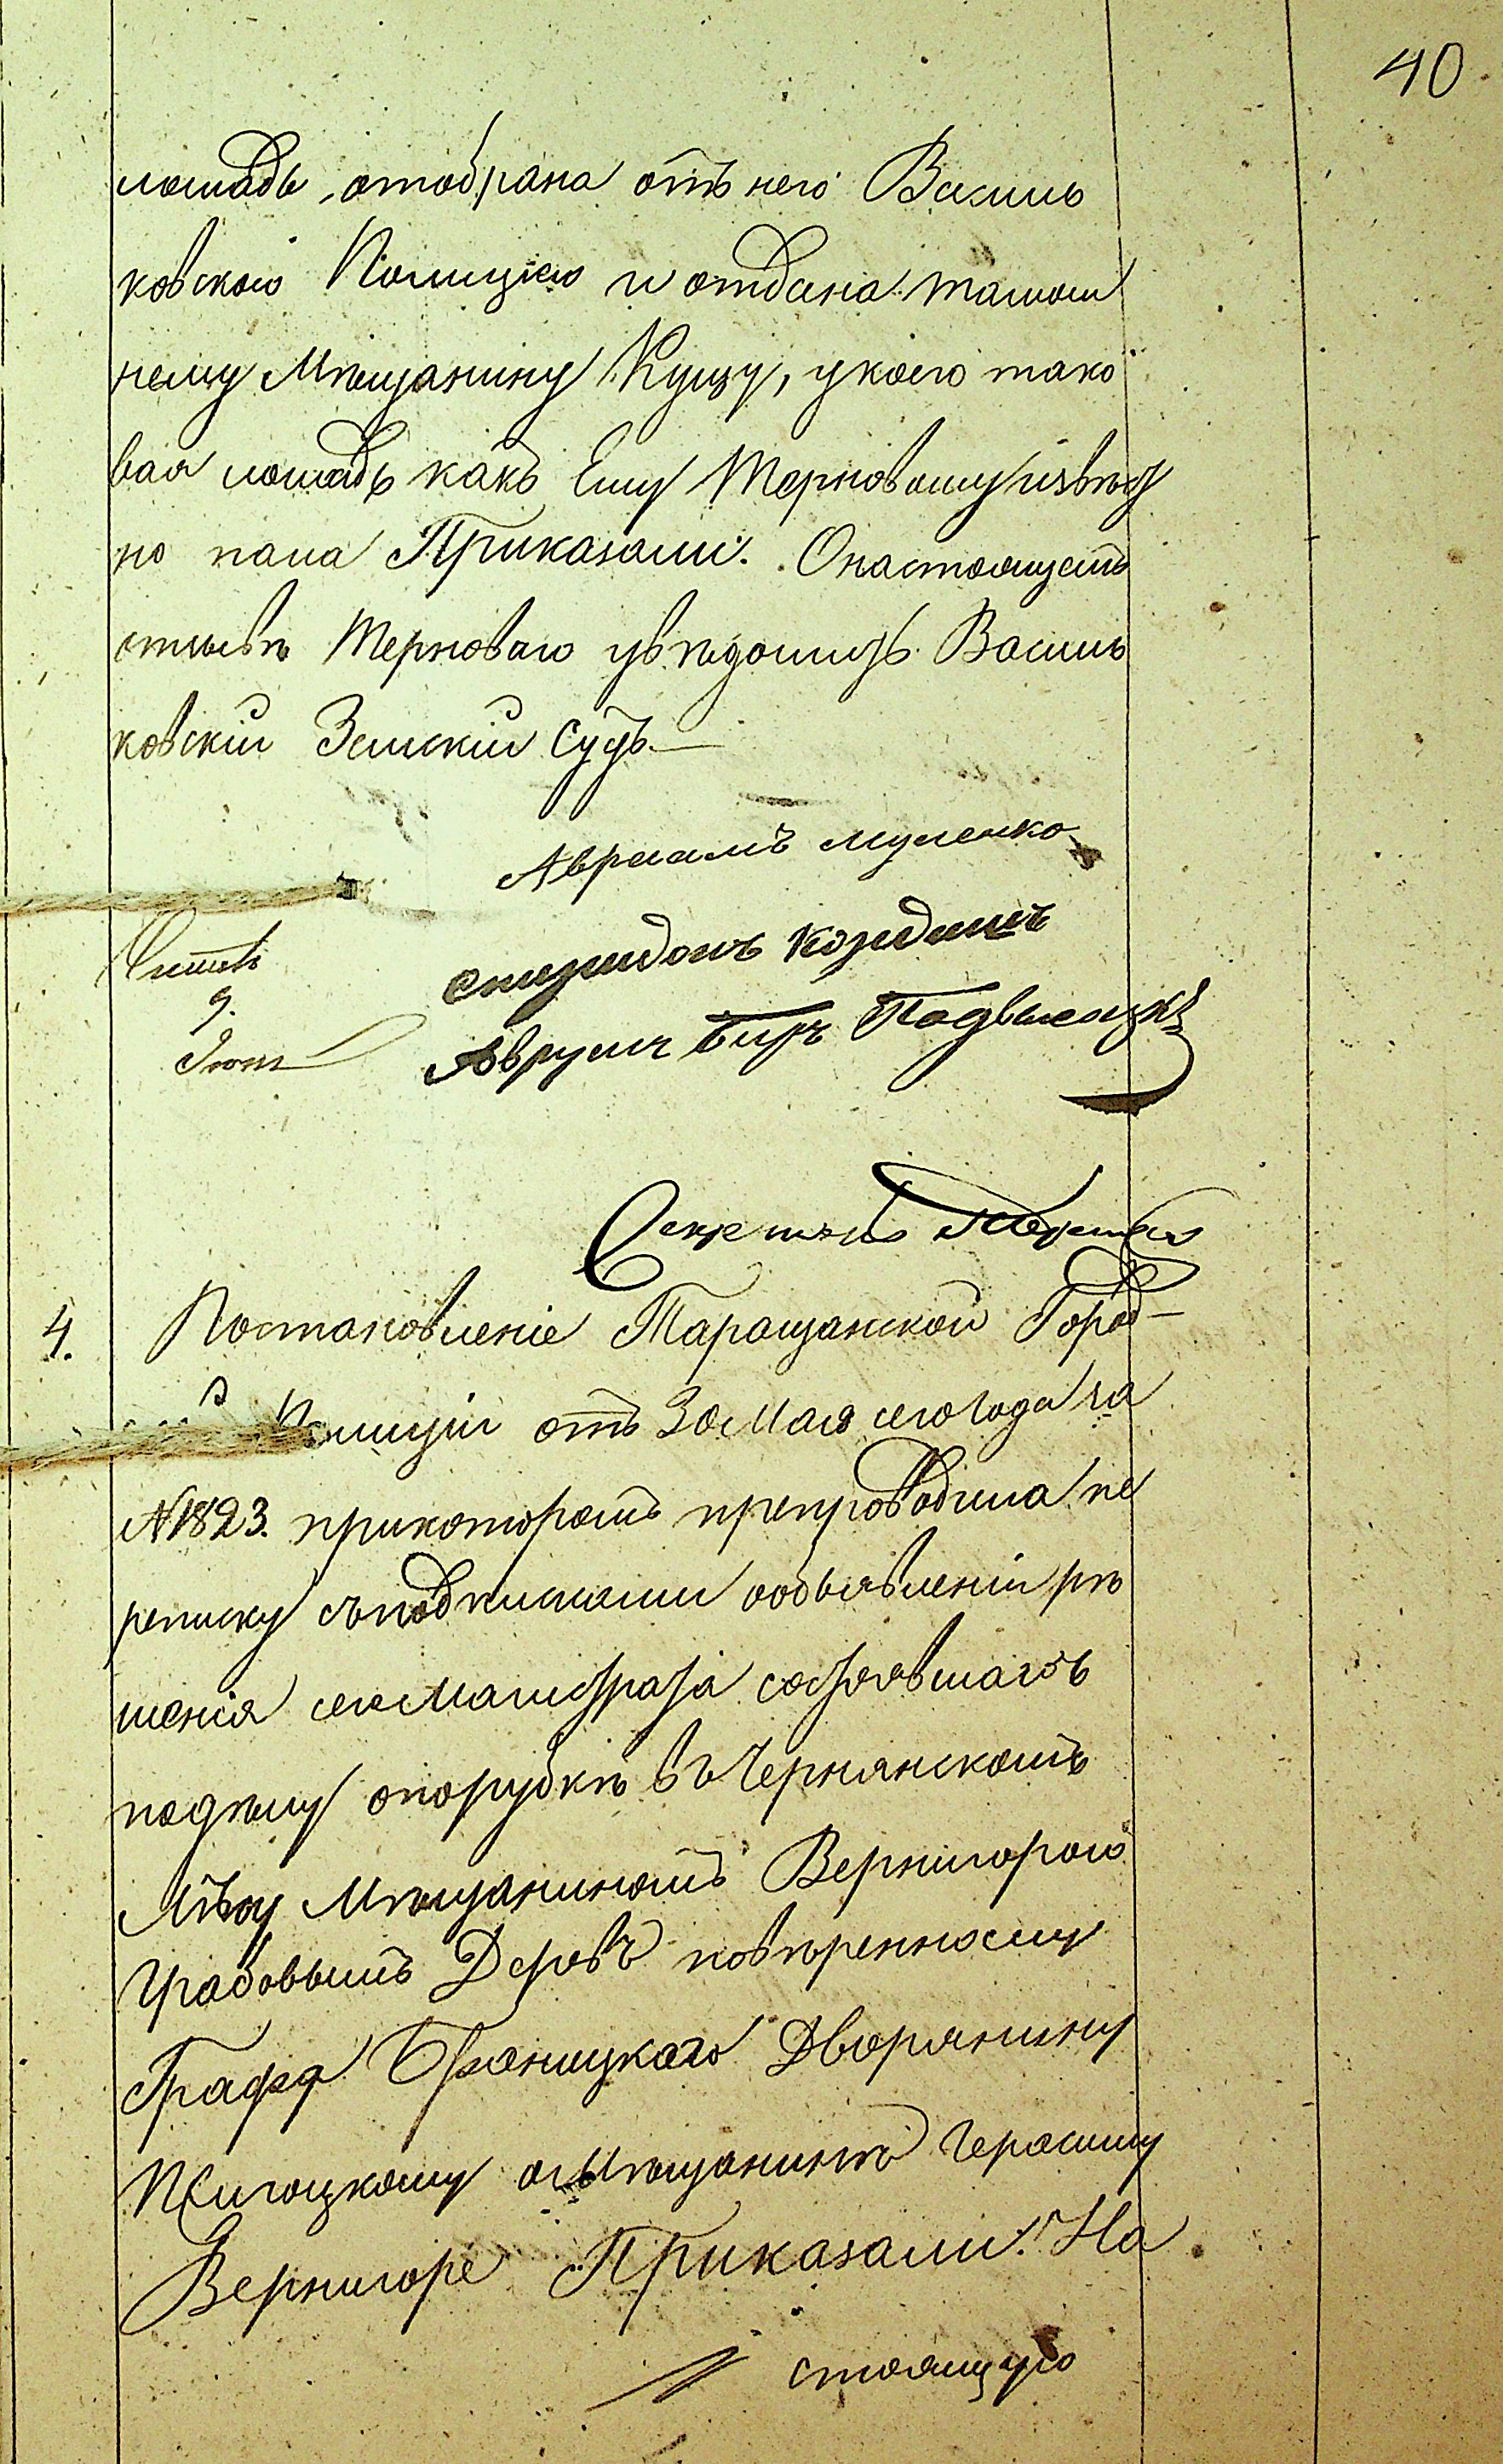 40
лошадь, отобрана отъ него Василь
ковскою Полициею и отдана тамош
нему Мѣщанину Куцу, у коего тако
вая лошадь какъ Ему Терновому извѣст
но пала Приказали: О настоящемъ
отзывѣ Терноваго увѣдомить Василь
ковскій Земскій Судъ.—
Авраамъ Муленко
Спиридонъ
Аврумъ Беръ Подвысоцкй
9.
Секретарь
4. Постановленіе Таращанской Город-
Полиціи отъ 30 Мая сего года за
№ 1823. при которомъ препроводила пе
реписку съ подписками о объявленіи рѣ
шенія сего Магистрата состоявшагось
по дѣлу о порубкѣ въ Чернянскомъ
Лѣсу Мѣщаниномъ Вернигорою
грабовыхъ Деровъ повѣренному
Графа Браницкаго Дворянину
и Мѣщанину Герасиму
Вернигоре Приказали: На
стоящую